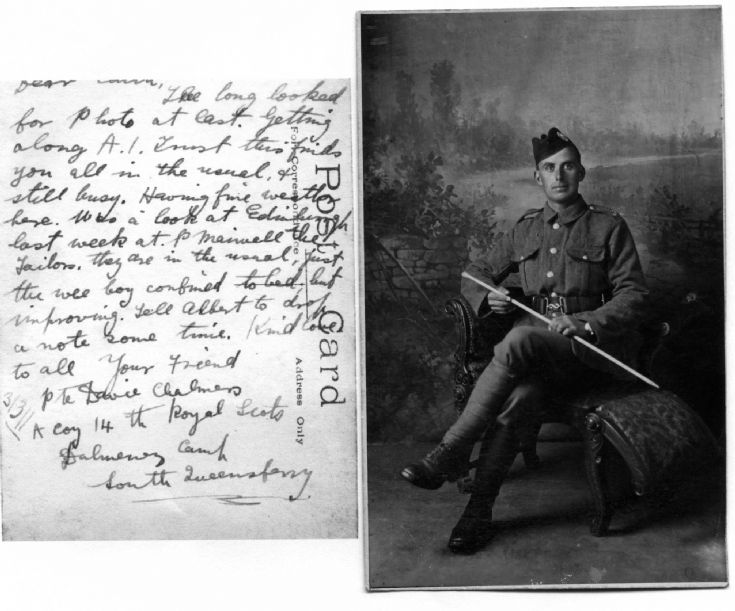 Dear
The long looked
for Photo at last. Getting
along A.1. Trust this finds
you all in the usual, &
still busy. Having fine weather
here. Was a look at Edinburgh
last week at. P Maxwell the
Tailors. they are in the usual, just
the wee boy confined to bed, but
improving. Tell Albert to drop
a note some time. Kind love
to all Your Friend
Pte Davie Chalmers
A coy 14 th Royal Scots
Dalmeney Camp
South Queensferry
Post Card
For Correspondence
Address Only